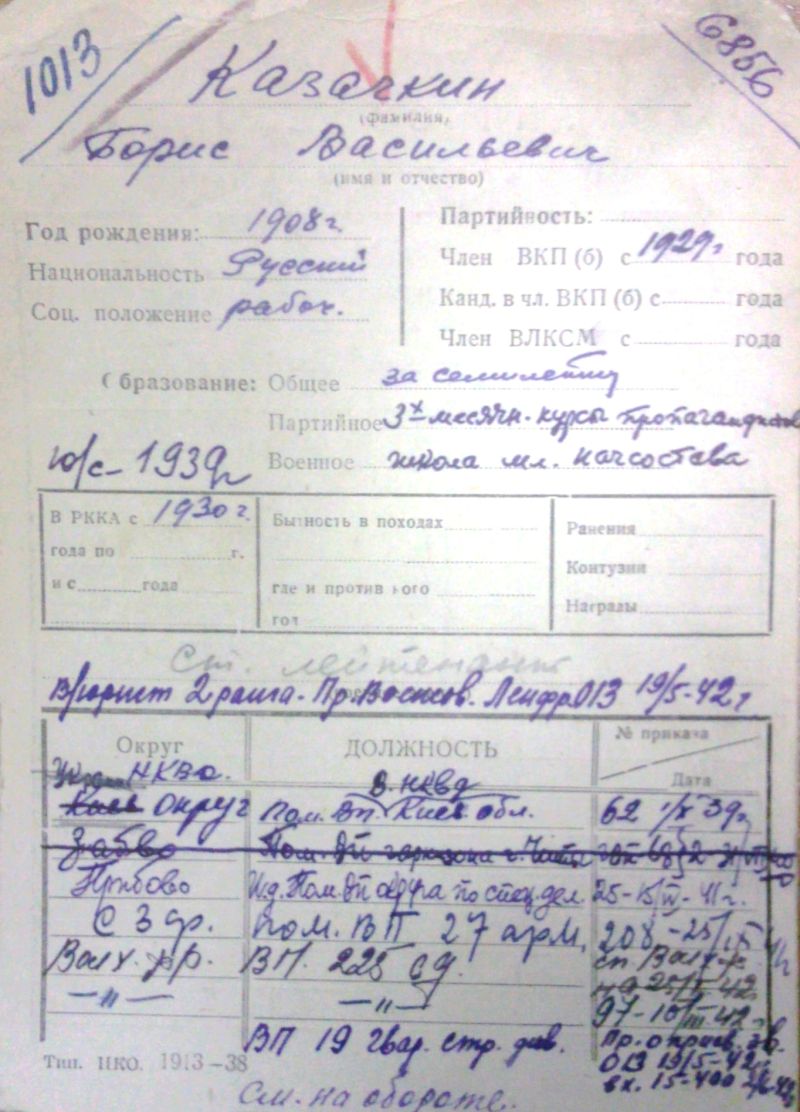 1013
6856
Казачкин
(фамилия)
Борис Васильевич
(имя и отчество)
Год рождения: 1908 г.
Национальность Русский
Соц. положение рабоч.
Партийность:
Член ВКП (б) с 1929 г года
Канд. в чл. ВКП (б) с года
Член ВЛКСМ с года
Образование: Общее за семилетку
Партийное 3х месячн. курсы пропагандистов
Военное школа мл. начсостава
ю/с - 1939
В РККА с 1930 г.
года по г.
и с года
Бытность в походах
где и против кого
год
Ранения
Контузии
Награды
Ст. лейтенант
В/юрист 2 ранга - Пр. Ленфр 013 19/5-42 г
Округ ДОЛЖНОСТЬ № приказа
Дата
НКВД. в. НКВД
округ Пом. ВП. Киев. обл. 62 1/X 39 г
Забво Пом. ВП гарнизона г. Чита
Прибово И.д. Пом. ВП округа по спец. дел. 25-15/IV-41 г.
С З фр. пом. ВП 27 арм, 208-25/IX
Волх. фр. ВП. 225 сд.
-"- -"- 97-10/III-42 г
ВП 19 гвар. стр. див. Пр. о присв. зв.
013 19/5-42 г.
вх. 15-400
Тип. НКО. 1913-38
См. на обороте.